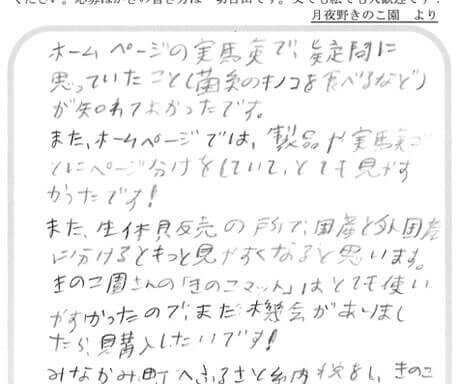 ください。応募はがきの書き方は一切自由です。文でも絵でも大歓迎です！
月夜野きのこ園　より
ホームページの実馬英で、疑問に
思っていたこと(菌糸のキノコを食べるなど)
が知れてよかったです。
また、ホームページでは、製品や実馬英ご
とにページ分けをしていて、とても見やす
かったです!
また、生体販売の所で、国産と外国産
に分けるともっと見やすくなると思います。
きのこ園さんの「きのこマット」はとても使い
やすかったので、また機会がありまし
たら、購入したいです!
みなかみ町へふるさと納税をし、きのこ